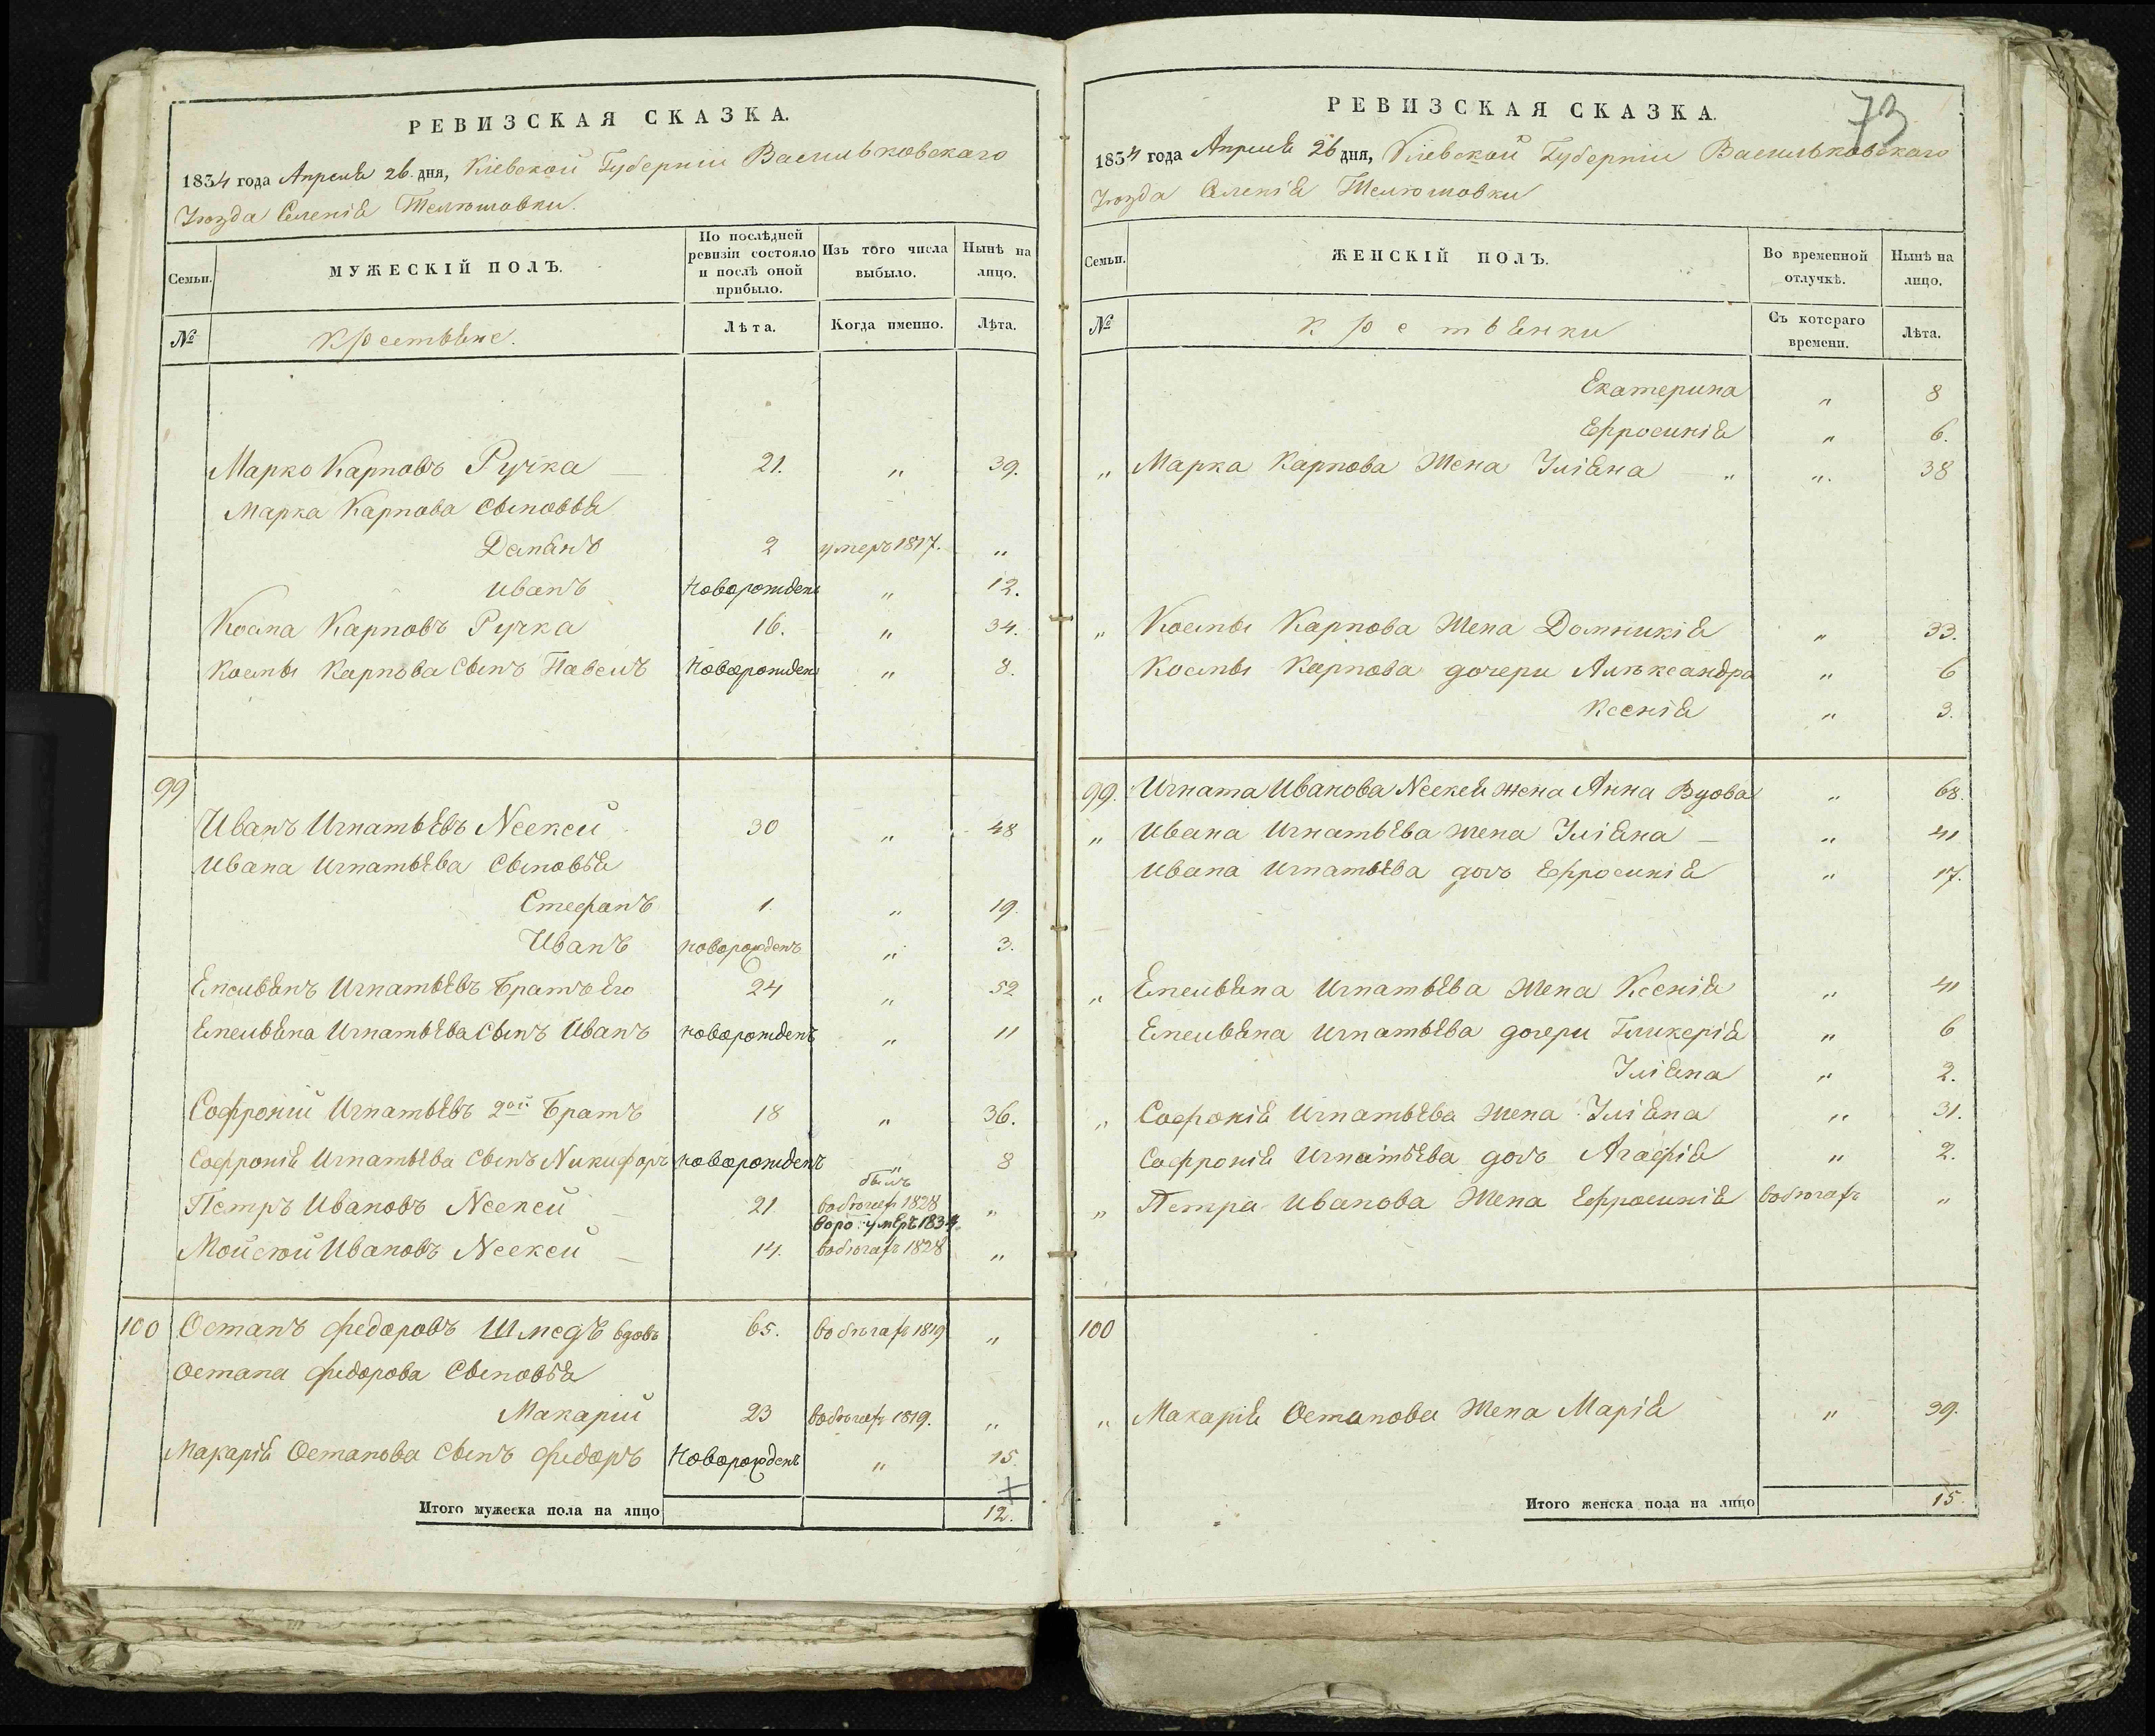 РЕВИЗСКАЯ СКАЗКА.
1834 года Апреля 26. дня, Кіевской Губерніи Васильковскаго
Уюзда Селенія Телюшовки.
Семьи. МУЖЕСКІЙ ПОЛЪ. По послѣдней ревизіи состояло и послѣ оной прибыло. Изъ того числа выбыло. Нынѣ на лицо.
№ Крестьяне. Лѣта. Когда именно. Лѣта.
Марко Карповъ Ручка — 21. „ 39.
Марка Карпова Сыновья
Демьянъ 2 умеръ 1817. „
Иванъ Новорожденъ „ 12.
Косма Карповъ Ручка 16. „ 34.
Космы Карпова Сынъ Павелъ Новорожденъ „ 8.
99
Иванъ Игнатьевъ Неекей 30 „ 48
Ивана Игнатьева Сыновья
Стефанъ 1. „ 19.
Иванъ новорожденъ „ 3.
Емельянъ Игнатьевъ Братъ Его 24 „ 52
Емельяна Игнатьева Сынъ Иванъ новорожденъ „ 11
Софроній Игнатьевъ 2ой Братъ 18 „ 36.
Софронія Игнатьева Сынъ Никифоръ новорожденъ „ 8
Петръ Ивановъ Неекей — 21 былъ вобюгах 1828 воро: умеръ 1834. „
Мойсюй Ивановъ Неекей — 14. вобюгах 1828 „
100 Остапъ Федоровъ Шмедъ вдовъ 65. вобюгах 1819 „
Остапа Федорова Сыновья
Макарій 23 вобюгах 1819. „
Макарія Остапова Сынъ Федоръ Новорожденъ „ 15.
Итого мужеска пола на лицо 12.
73
РЕВИЗСКАЯ СКАЗКА.
1834 года Апреля 26 дня, Кіевской Губерніи Васильковскаго
Уюзда Селенія Телюшовки
Семьи. ЖЕНСКІЙ ПОЛЪ. Во временной отлучкѣ. Нынѣ на лицо.
№ Крестьянки Съ котораго времени. Лѣта.
Екатерина „ 8
Ефросинія „ 6.
„ Марка Карпова Жена Уліяна — „ „. 38
„ Космы Карпова Жена Домникія „ 33.
Космы Карпова дочери Александра „ 6
Ксенія „ 3.
99. Игната Иванова Неекея жена Анна Вдова „ 68.
„ Ивана Игнатьева жена Уліяна — „ 41
Ивана Игнатьева дочь Ефросинія „ 17.
„ Емельяна Игнатьева Жена Ксенія „ 41
Емельяна Игнатьева дочери Гликерія „ 6
Уліяна „ 2.
„ Софронія Игнатьева жена Уліяна „ 31.
Софронія Игнатьева дочь Агафія „ 2.
„ Петра Иванова Жена Ефросинія вобюгахъ „
100
„ Макарія Остапова Жена Марія „ 39.
Итого женска пола на лицо 15.